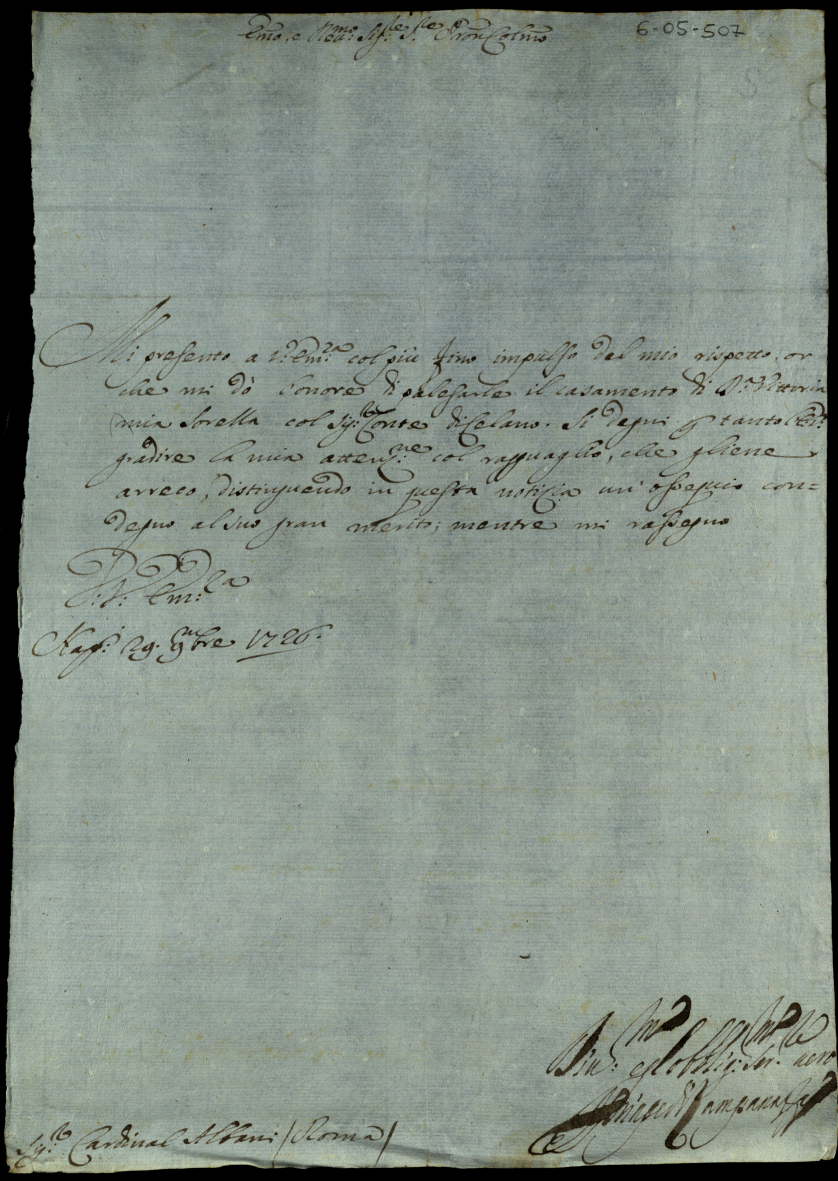 Emo, e Rmo Sigre Sre Pron Colmo
6-05-507
Mi presento a V: Em:za col più fino impulso del mio rispetto, or
che mi dò l'onore di palesarle il casamento di D:a Vittoria
mia Sorella col Sig:r Conte di Celano. Si degni p tanto
gradire la mia atten:ne col ragguaglio, che gliene
arreco, distinguendo in questa notizia un'ossequio con=
degno al suo gran merito; mentre mi rassegno
D: V: Em:za
Nap: 29. 9mbre 1726.
Div:mo ed obblig:mo Ser:re vero
Sig:r Cardinal Albani (Roma)